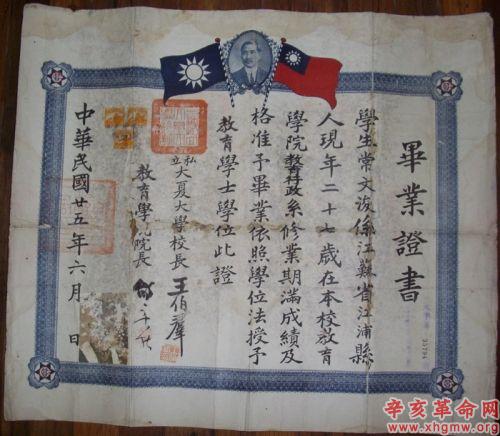 畢業證書
學生常文浚係江蘇省江浦縣
人現年二十七歲在本校教育
學院教育行政系修業期滿成績及
格准予畢業依照學位法授予
教育學士學位此證
私立大夏大學校長王伯群
教育學院院長
中華民國廿五年六月 日
辛亥革命网
www.xhgmw.org